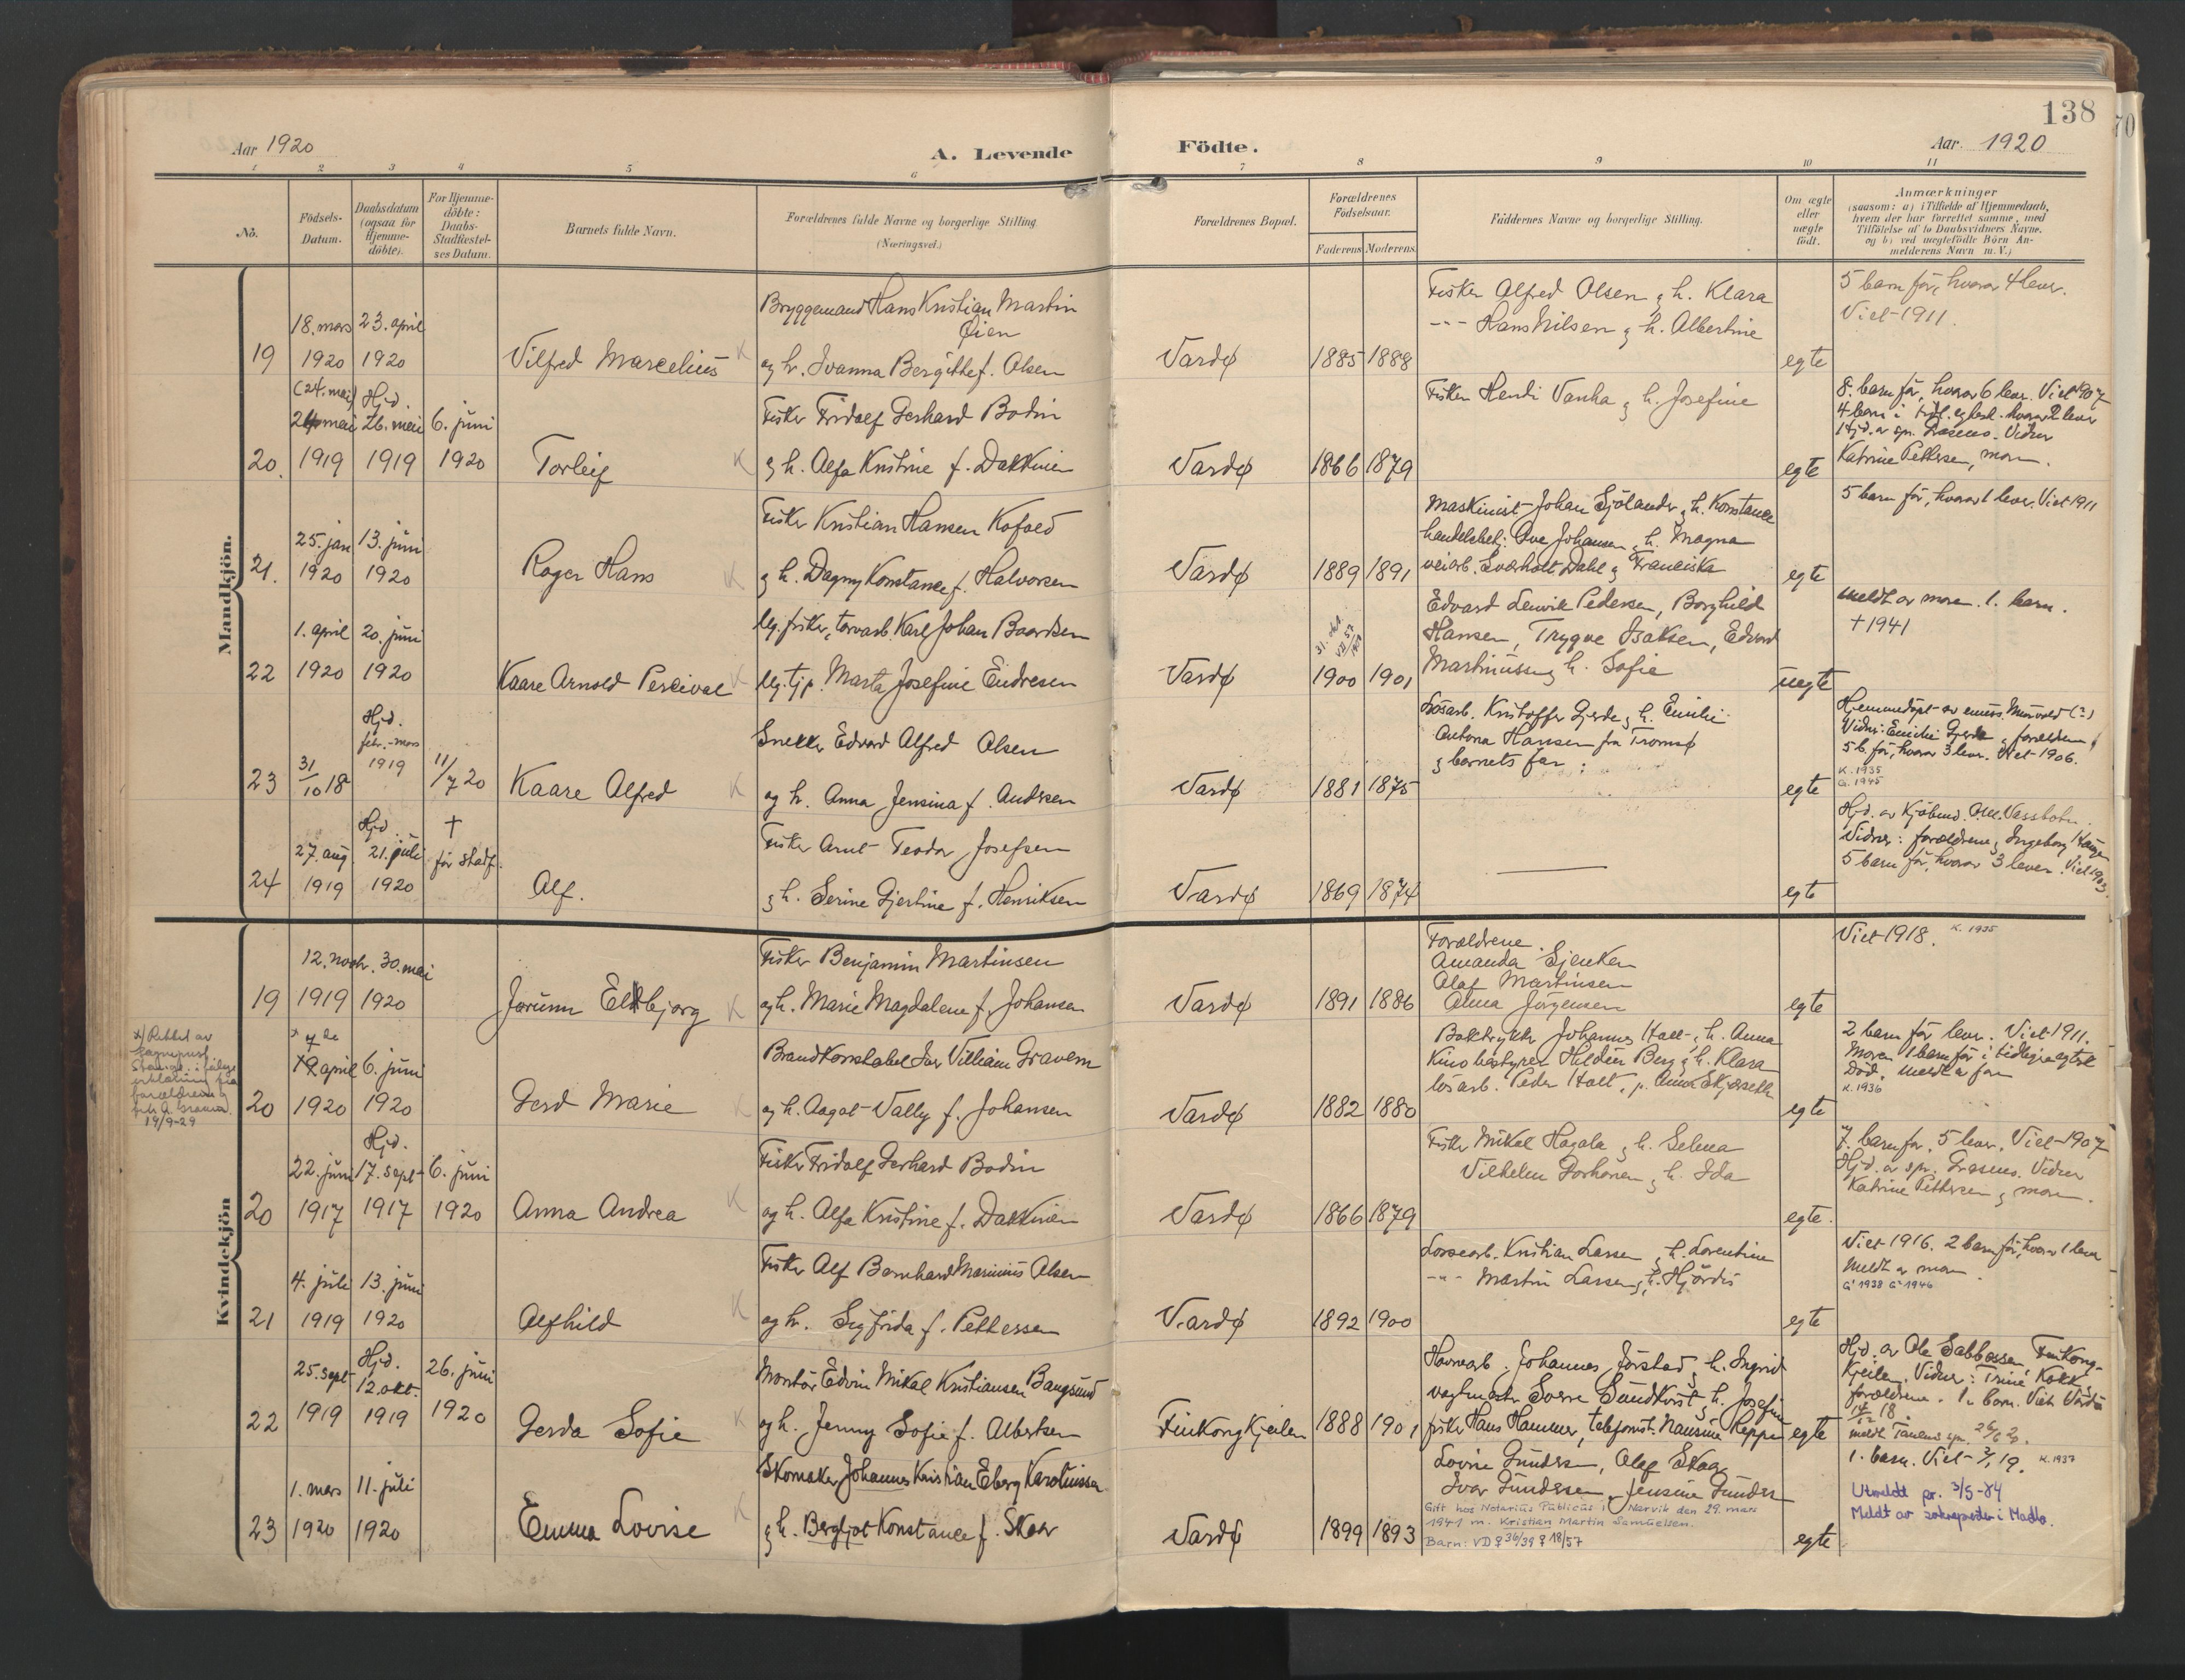 138
Aar 1920
A. Levende Födte.
Aar. 1920
1 2 3 4 5 6 7 8 9 10 11
No.
Födsels-Datum.
Daabsdatum (ogsaa for Hjemme-döbte).
For Hjemme-döbte: Daabs-Stadfæstel-ses Datum.
Barnets fulde Navn.
Forældrenes fulde Navne og borgerlige Stilling
(Næringsvei.)
Forældrenes Bopæl.
Forældrenes Födselsaar.
Faderens Moderens
Faddernes Navne og borgerlige Stilling.
Om ægte eller uægte födt.
Anmærkninger
(saasom: a) i Tilfælde af Hjemmedaab, hvem der har forrettet samme, med Tilföielse af to Daabsvidners Navne, og b) ved uægtefödte Börn An-melderens Navn m. V.)
Mandkjön.
19
18. mars 1920
23. april 1920
Vilfred Marcelius
Bryggemand Hans Kristian Martin Øien
og h. Ivanna Bergitte f. Olsen
Vardø
1885 1888
Fisker Alfred Olsen & h. Klara
-"- Hans Nilsen & h. Albertine
egte
5 barn før, hvorav 4 lever.
Viet 1911.
20.
(24. mai)
24 mai 1919
Hjd. 26. mai 1919
6. juni 1920
Torleif
Fisker Fridolf Gerhard Bodin
& h. Alfa Kristine f. Dakkinien
Vardø
1866 1879
Fisker Henrik Vanha & h. Josefine
egte
8. barn før, hvorav 6 lever. Viet 1907
4 barn i tidl. egtesk. hvorav 2 lever
Hjd. av spr. Græsens. Vidner
Katrine Pettersen, mor.
21.
25. jan 1920
13. juni 1920
Roger Hans
Fisker Kristian Hansen Kofoed
& h. Dagny Konstance f. Halvorsen
Vardø
1889 1891
Maskinist Johan Sjölander & h. Konstance
handelsbetj. Ove Johansen & h. Magna
veiarb. Sværholt Dahl & Franciska
egte
5 barn før, hvorav 1 lever. Viet 1911
22
1. april 1920
20. juni 1920
Kaare Arnold Percival
Ug. fisker, torvarb. Karl Johan Baardsen
Ug. tjp. Marta Josefine Endresen
Vardø
1900 1901
Edvard Lenvik Pedersen, Borghild
Hansen, Trygve Isaksen, Edvard
Martinussen & h. Sofie
uegte
meldt av moren. 1. barn.
† 1941
23
31/10 18
Hjd. febr.-mars 1919
11/7 20
Kaare Alfred
Snekker Edvard Alfred Olsen
og h. Anna Jensina f. Andersen
Vardø
1881 1875
Løsarb. Kristoffer Gjerde & h. Emilie
Antona Hansen fra Tromsø
& barnets far
egte
Hjemmedøpt av emiss. Murvold (?)
Vidner: Emilie Gjerde & forældrene
5 b. før, hvorav 3 lever. Viet 1906.
K. 1935
G. 1945
24
27. aug 1919
Hjd 21. juli 1920
† før stadf.
Alf.
Fisker Arnt Teodor Josefsen
& h. Serine Gjertine f. Henriksen
Vardø
1869 1874
egte
Hjd. av Kjøbmd. O.M. Vassbotn.
Vidner: forældrene & Ingeborg
5 barn før, hvorav 3 lever. Viet 1903.
Kvindekjön
19
12. novbr. 1919
30. mai 1920
Jorunn Eldbjorg
Fisker Benjamin Martinsen
og h. Marie Magdalene f. Johansen
Vardø
1891 1886
Forældrene.
Amanda Sjenken
Olaf Martinsen
Alma Jörgensen
egte
Viet 1918. K. 1935
x) Rettet av
forældrene
19/9-29
20
x 7de april 1920
6. juni 1920
Gerd Marie
Brandkonstabel Ivar Villiam Gravem
og h. Aagot Vally f. Johansen
Vardø
1882 1880
Boktrykker Johannes Holt & h. Anna
Kinobestyrer Hildin Berg & h. Klara
løsarb. Peder Holt, p. Anna Skjærseth
egte
2 barn før lever. Viet 1911.
Moren 1 barn før i tidligere egtsk
död. meldt av far
K. 1936
20
22. juni 1917
Hjd. 17. sept 1917
6. juni 1920
Anna Andrea
Fisker Fridolf Gerhard Bodin
og h. Alfa Kristine f. Dakkinien
Vardø
1866 1879
Fisker Mikal Hagala & h. Selma
Vilhelm Gorhonen & h. Ida
egte.
7. barn før. 5 lever. Viet 1907
Hjd. av spr. Græsens. Vidner
Katrine Pettersen & moren.
21
4. juli 1919
13. juni 1920
Alfhild
Fisker Alf Bernhard Marinius Olsen
og h. Sigfrida f. Pettersen
Vardø
1892 1900
Losseарb. Kristian Larsen & h. Lorentine
-"- Martin Larsen & h. Hjördis
egte
Viet 1916. 2 barn før, hvorav 1 lever
Meldt av mor.
G' 1938 G' 1946
22
25. sept 1919
Hjd. 12. okt. 1919
26. juni 1920
Gerda Sofie
Montör Edvin Mikal Kristiansen Bangsund
og h. Jenny Sofie f. Albertsen
Finkongkjeilen
1888 1901
Havnearb. Johannes Jörstad & h. Ingrid
vagtmester Sverre Sundkvist & h. Josefine
fisker Hans Hammer, telefonist. Nansine Keppen
egte
Hjd. av Ole Sabbassen, Finkong-
kjeilen. Vidner: Trine Kokk,
forældrene. 1. barn. Viet Vardø
14/12 18.
meldt Tanens spr. 26/6 20.
23
1. mars 1920
11. juli 1920
Emma Lovise
Skomaker Johannes Kristian Eberg Karoliussen
& h. Bergljot Konstance f. Skaar
Vardø
1899 1893
Lovise Gundersen, Olaf Skaar
Ivar Gundersen, Jensine Gunders
Gift hos Notarius Publicus i Narvik den 29. mars
1941 m. Kristian Martin Samuelsen.
Barn: VD ♀ 36/39 ♀ 18/57
egte
1. barn. Viet 19. K. 1937
Utmeldt pr. 3/5-84
Meldt av sokneprsten i Madla.